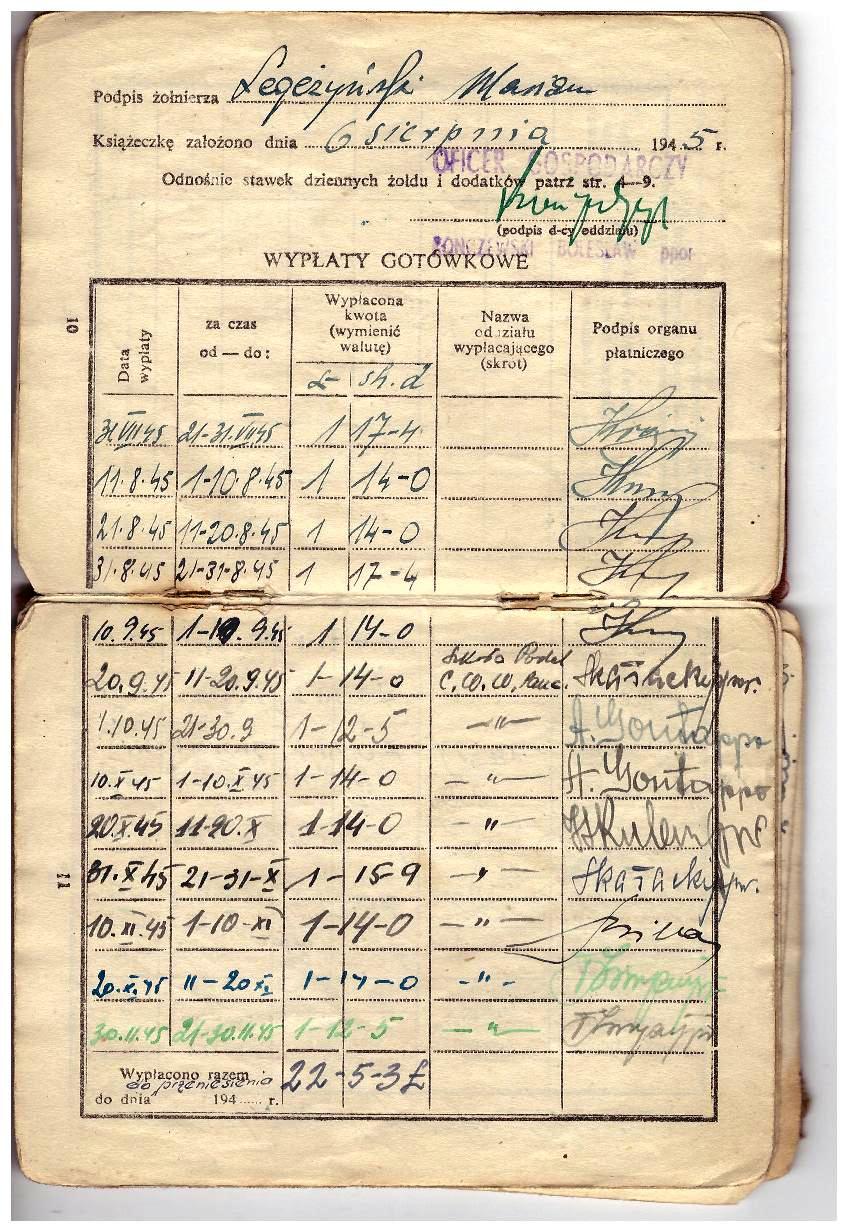 Podpis żołnierza Legeżyński Marian
Książeczkę założono dnia 6 sierpnia 1945 r.
OFICER GOSPODARCZY
Odnośnie stawek dziennych żołdu i dodatków patrz str. 4—9.
(podpis d-cy oddziału)
BOLESŁAW ppor
WYPŁATY GOTÓWKOWE
10
Data wypłaty
za czas od — do:
Wypłacona kwota (wymienić walutę)
£ sh. d
Nazwa oddziału wypłacającego (skrót)
Podpis organu płatniczego
31 VII 45 21-31.VII 45 1 17-4
11.8.45 1-10.8.45 1 14-0
21.8.45 11-20.8.45 1 14-0
31.8.45 21-31-8.45 1 17-4
10.9.45 1-10.9.45 1 14-0
20.9.45 11-20.9.45 1-14-0 Szkoła Podch C.W.W.Panc. Skałacki
1.10.45 21-30.9 1-12-5 —"—
10.X 45 1-10.X 45 1-14-0 —"—
20.X.45 11-20.X 1-14-0 —"—
31.X 45 21-31-X 1-15-9 —"— Skałacki
10.XI.45 1-10-XI 1-14-0 —"—
20.XI.45 11-20 XI 1-14-0 -"-
30.11.45 21-30.11.45 1-12-5 —"—
11
Wypłacono razem 22-5-3£
do przeniesienia
do dnia 194 r.